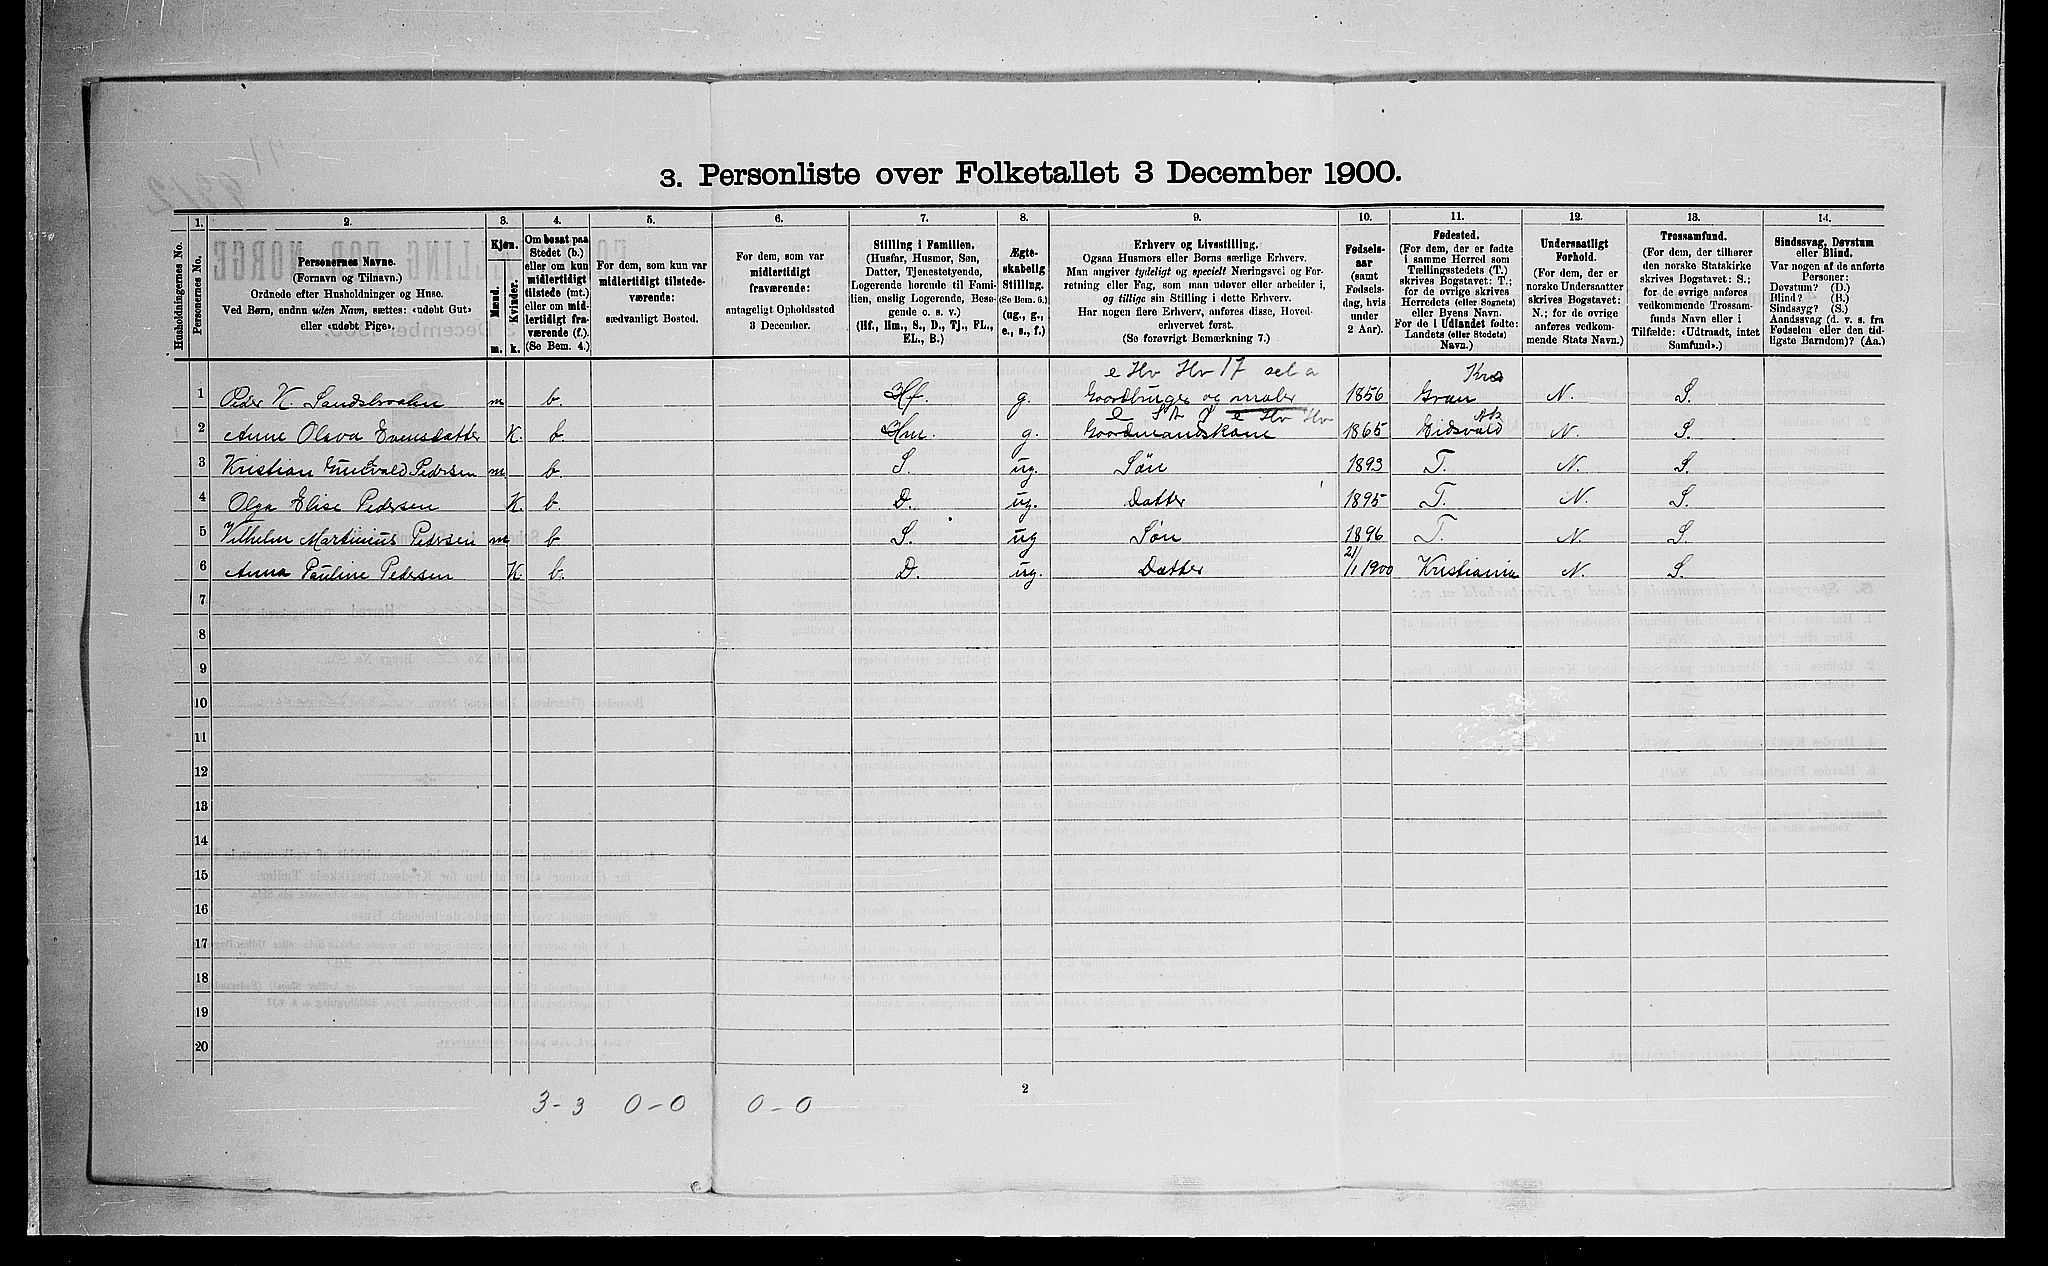 3. Personliste over Folketallet 3 December 1900.
1. 2. 3. 4. 5. 6. 7. 8. 9. 10. 11. 12. 13. 14.
Husholdningernes No.
Personernes No.
Personernes Navne.
(Fornavn og Tilnavn.)
Ordnede efter Husholdninger og Huse.
Ved Børn, endnu uden Navn, sættes: «udøbt Gut»
eller «udøbt Pige».
Kjøn.
Mænd.
Kvinder.
m. k.
Om bosat paa
Stedet (b.)
eller om kun
midlertidigt
tilstede (mt.)
eller om mid-
lertidigt fra-
værende (f.).
(Se Bem. 4.)
For dem, som kun var
midlertidigt tilstede-
værende:
sædvanligt Bosted.
For dem, som var
midlertidigt
fraværende:
antageligt Opholdssted
3 December.
Stilling i Familien.
(Husfar, Husmor, Søn,
Datter, Tjenestetyende,
Logerende hørende til Fami-
lien, enslig Logerende, Besø-
gende o. s. v.)
(Hf., Hm., S., D., Tj., FL.,
EL., B.)
Ægte-
skabelig
Stilling.
(Se Bem. 6.)
(ug., g.,
e., s., f.)
Erhverv og Livsstilling.
Ogsaa Husmors eller Børns særlige Erhverv.
Man angiver tydeligt og specielt Næringsvei og For-
retning eller Fag, som man udøver eller arbeider i,
og tillige sin Stilling i dette Erhverv.
Har nogen flere Erhverv, anføres disse, Hoved-
erhvervet først.
(Se forøvrigt Bemærkning 7.)
Fødsels-
aar
(samt
Fødsels-
dag, hvis
under
2 Aar).
Fødested.
(For dem, der er fødte
i samme Herred som
Tællingsstedets (T.)
skrives Bogstavet: T.;
for de øvrige skrives
Herredets (eller Sognets)
eller Byens Navn.
For de i Udlandet fødte:
Landets (eller Stedets)
Navn.)
Undersaatligt
Forhold.
(For dem, der er
norske Undersaatter
skrives Bogstavet:
N.; for de øvrige
anføres vedkom-
mende Stats Navn.)
Trossamfund.
(For dem, der tilhører
den norske Statskirke
skrives Bogstavet: S.;
for de øvrige anføres
vedkommende Trossam-
funds Navn eller i
Tilfælde: «Udtraadt, intet
Samfund».)
Sindssvag, Døvstum
eller Blind.
Var nogen af de anførte
Personer:
Døvstum? (D.)
Blind? (B.)
Sindssyg? (S.)
Aandssvag (d. v. s. fra
Fødselen eller den tid-
ligste Barndom)? (Aa.)
e Hv Hv 17 sel a Krs
1 Peder K. Sandsbraaten m b. Hf. g. Gaardbruger og maler 1856 Gran N. S.
Ak
2 Anne Olava Evensdatter K. b Hm. g. Gaardmandskone 1865 Eidsvold N. S.
3 Kristian Pedersen m b. S. ug. Søn 1893 T. N. S.
4 Olga Elise Pedersen K. b. D. ug. Datter 1895 T. N. S.
5 Vilhelm Martinius Pedersen m b. S. ug Søn 1896 T. N. S.
6 Anna Pauline Pedersen K. b. D. ug. Datter 21/1 1900 Kristiania N. S.
7
8
9
10
11
12
13
14
15
16
17
18
19
20
2
3-3 0-0 0-0